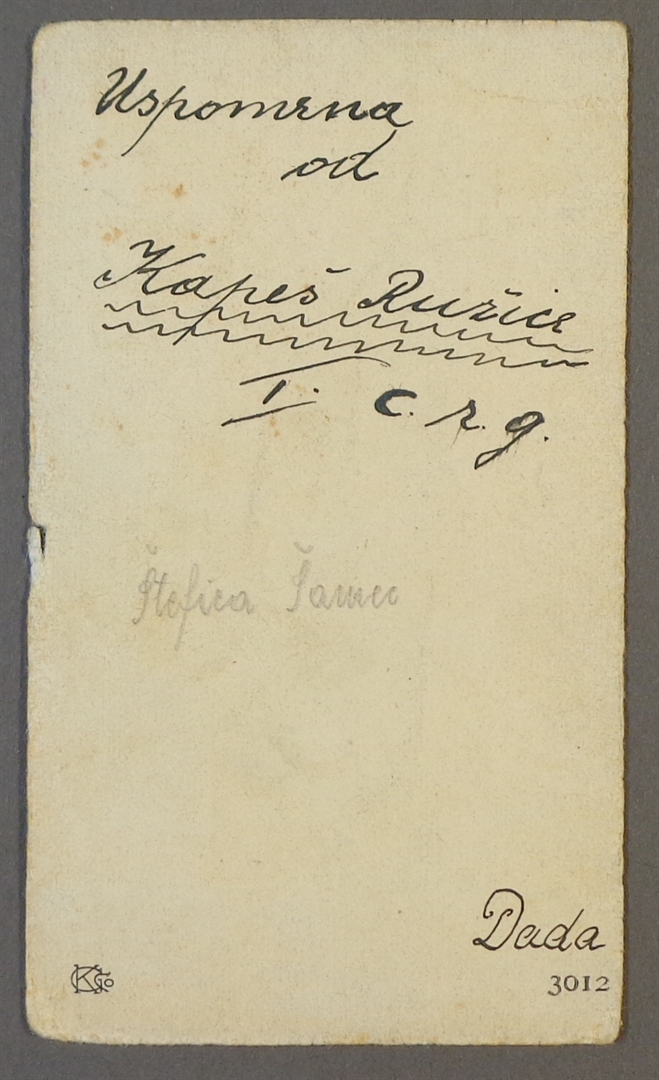 Uspomena
od
Kapeš Ružice
I. c. r. g.
Štefica
Dada
3012